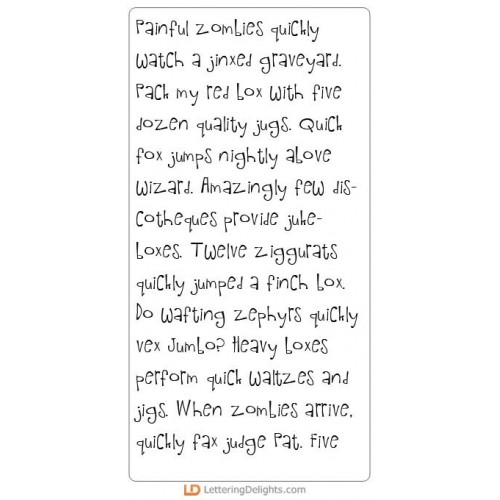 Painful zombies quickly
watch a jinxed graveyard.
Pack my red box with five
dozen quality jugs. Quick
fox jumps nightly above
wizard. Amazingly few dis-
cotheques provide juke-
boxes. Twelve ziggurats
quickly jumped a finch box.
Do wafting zephyrs quickly
vex Jumbo? Heavy boxes
perform quick waltzes and
jigs. When zombies arrive,
quickly fax judge Pat. Five
LD LetteringDelights.com